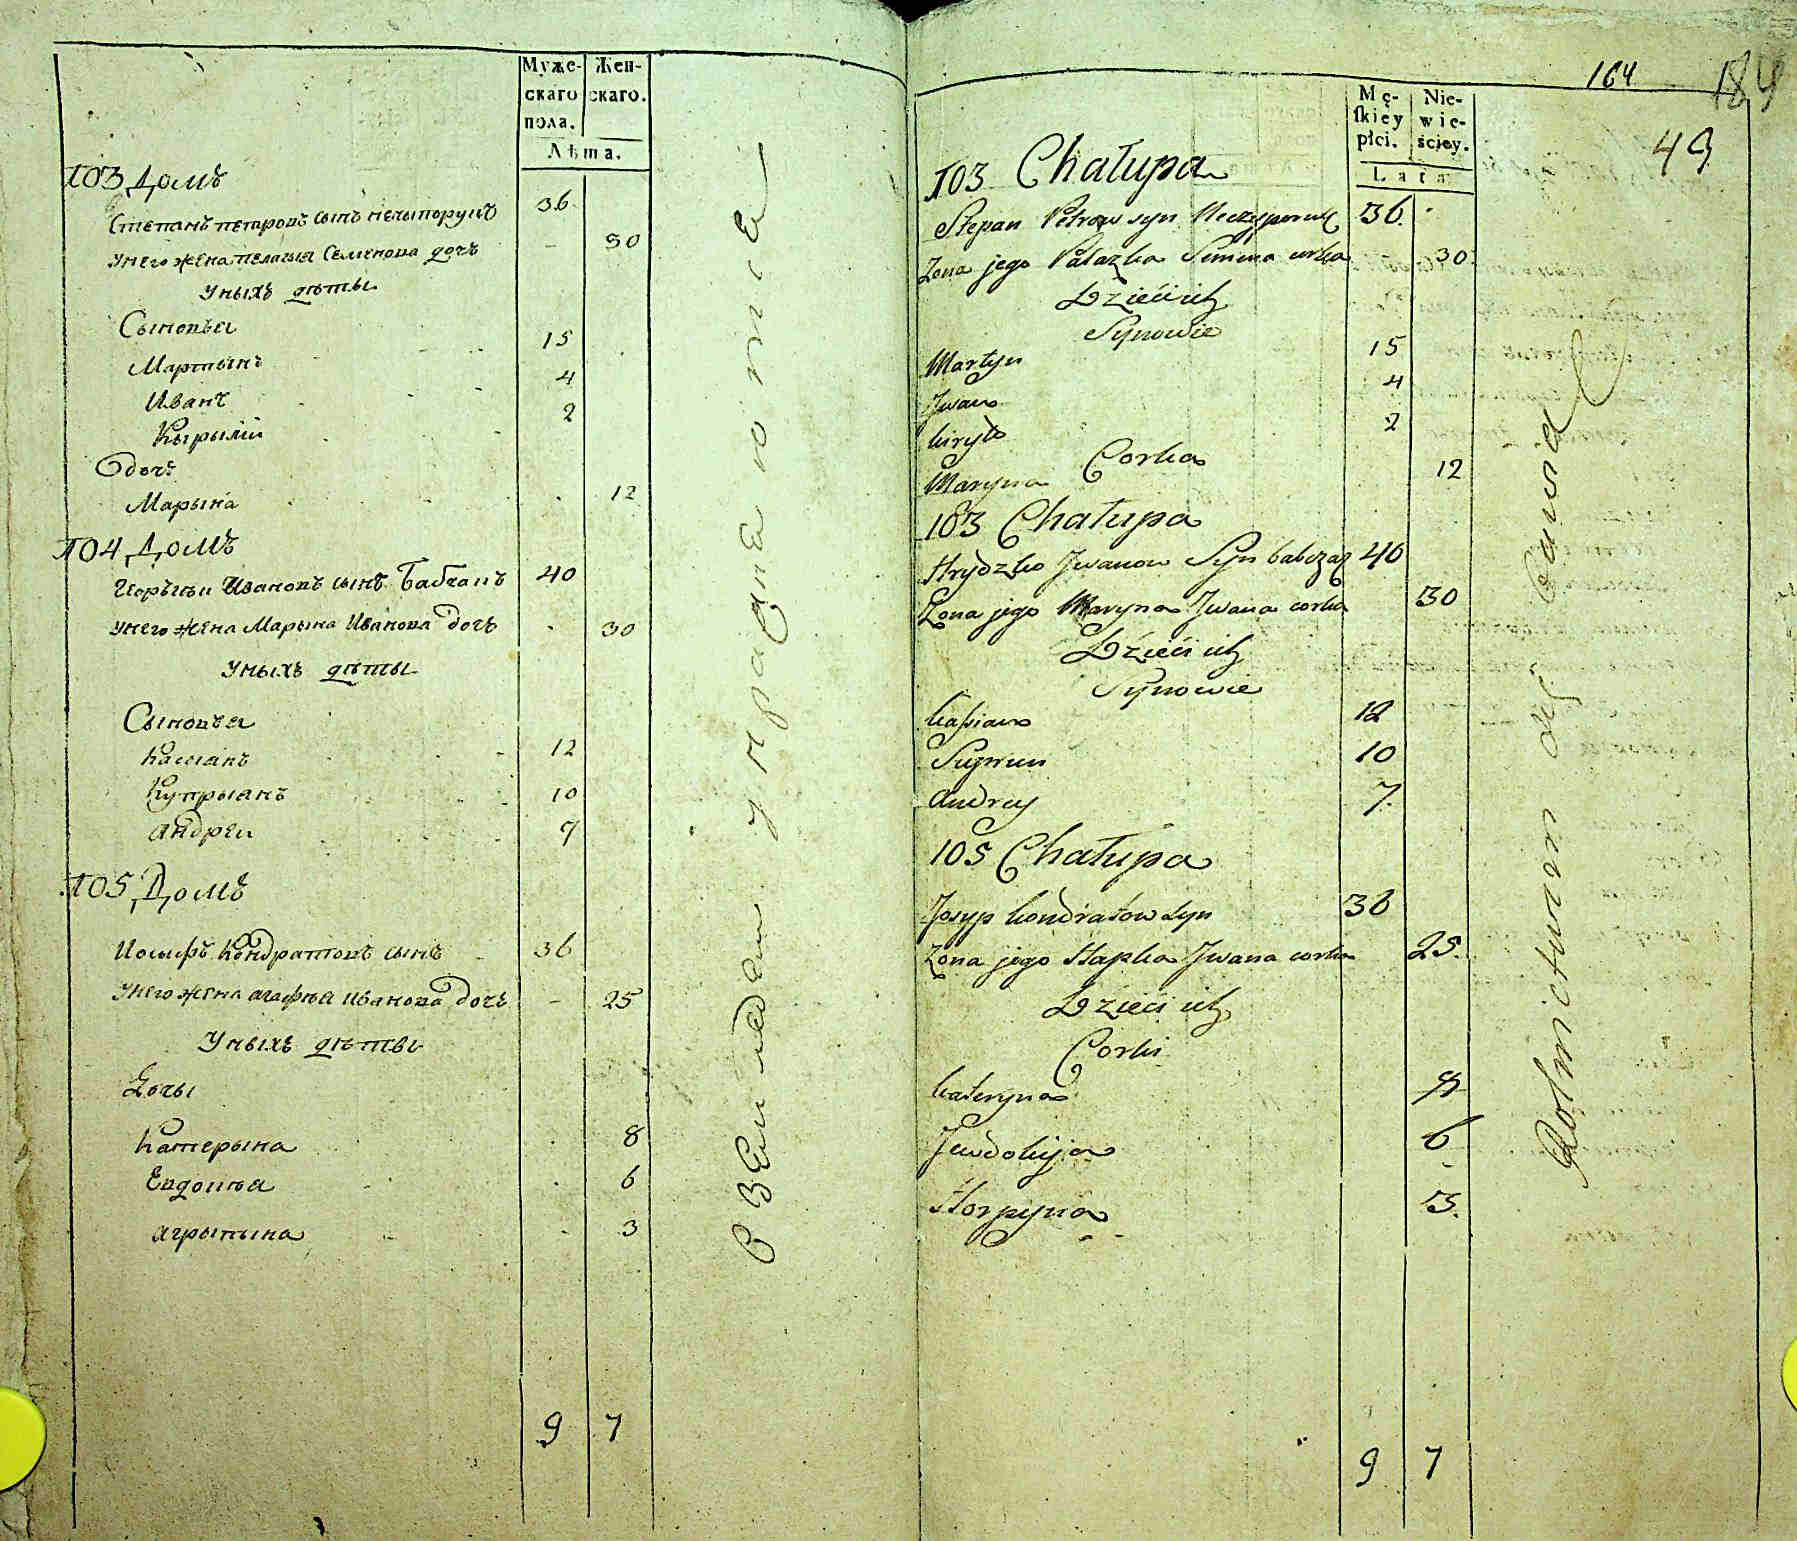 Муже-
скаго
пола.
Жен-
скаго.
Лѣта.
103 Домъ
Степанъ петровъ сынъ нечыпорукъ 36
унего жена пелагыя Семенова дочъ 30
Уныхъ дѣты
Сыновья
Мартынъ 15
Иванъ 4
Кырыли 2
дочъ
Марына 12
104 Домъ
Ивановъ сынъ Бабчакъ 40
унего жена Марына Иванова дочъ 30
Уныхъ дѣты
Сыновья
Касыянъ 12
Купрыянъ 10
Андреи 7
105 Домъ
Иосыфъ Кондратовъ сынъ 36
Унего жена агафья иванова дочъ 25
Уныхъ дѣты
Дочы
Катерына 8
Евдокья 6
агрыпына 3
9 7
упражняютце
164
189
49
Mę-
ſkiey
płci.
Nie-
wie-
ściey.
Lata
103 Chałupa
Stepan Petrow syn Neczyporuk 36.
Zona jego Pałazka Semena corka 30
Dzieci ich
Synowie
Martyn 15
Jwan 4
kiryło 2
Corka
Maryna 12
103 Chałupa
Hrydzko Jwanow Syn babczak 40
Zona jego Maryna Jwana corka 30
Dzieci ich
Synowie
kaſsian 12
Suprun 10
Andrey 7.
105 Chałupa
Josyp kondratow syn 36
Zona jego Hapka Jwana corka 25.
Dzieci ich
Corki
kateryna 8
Jewdokija 6
Horpyna 3.
9 7
Rolnictwem się bawią